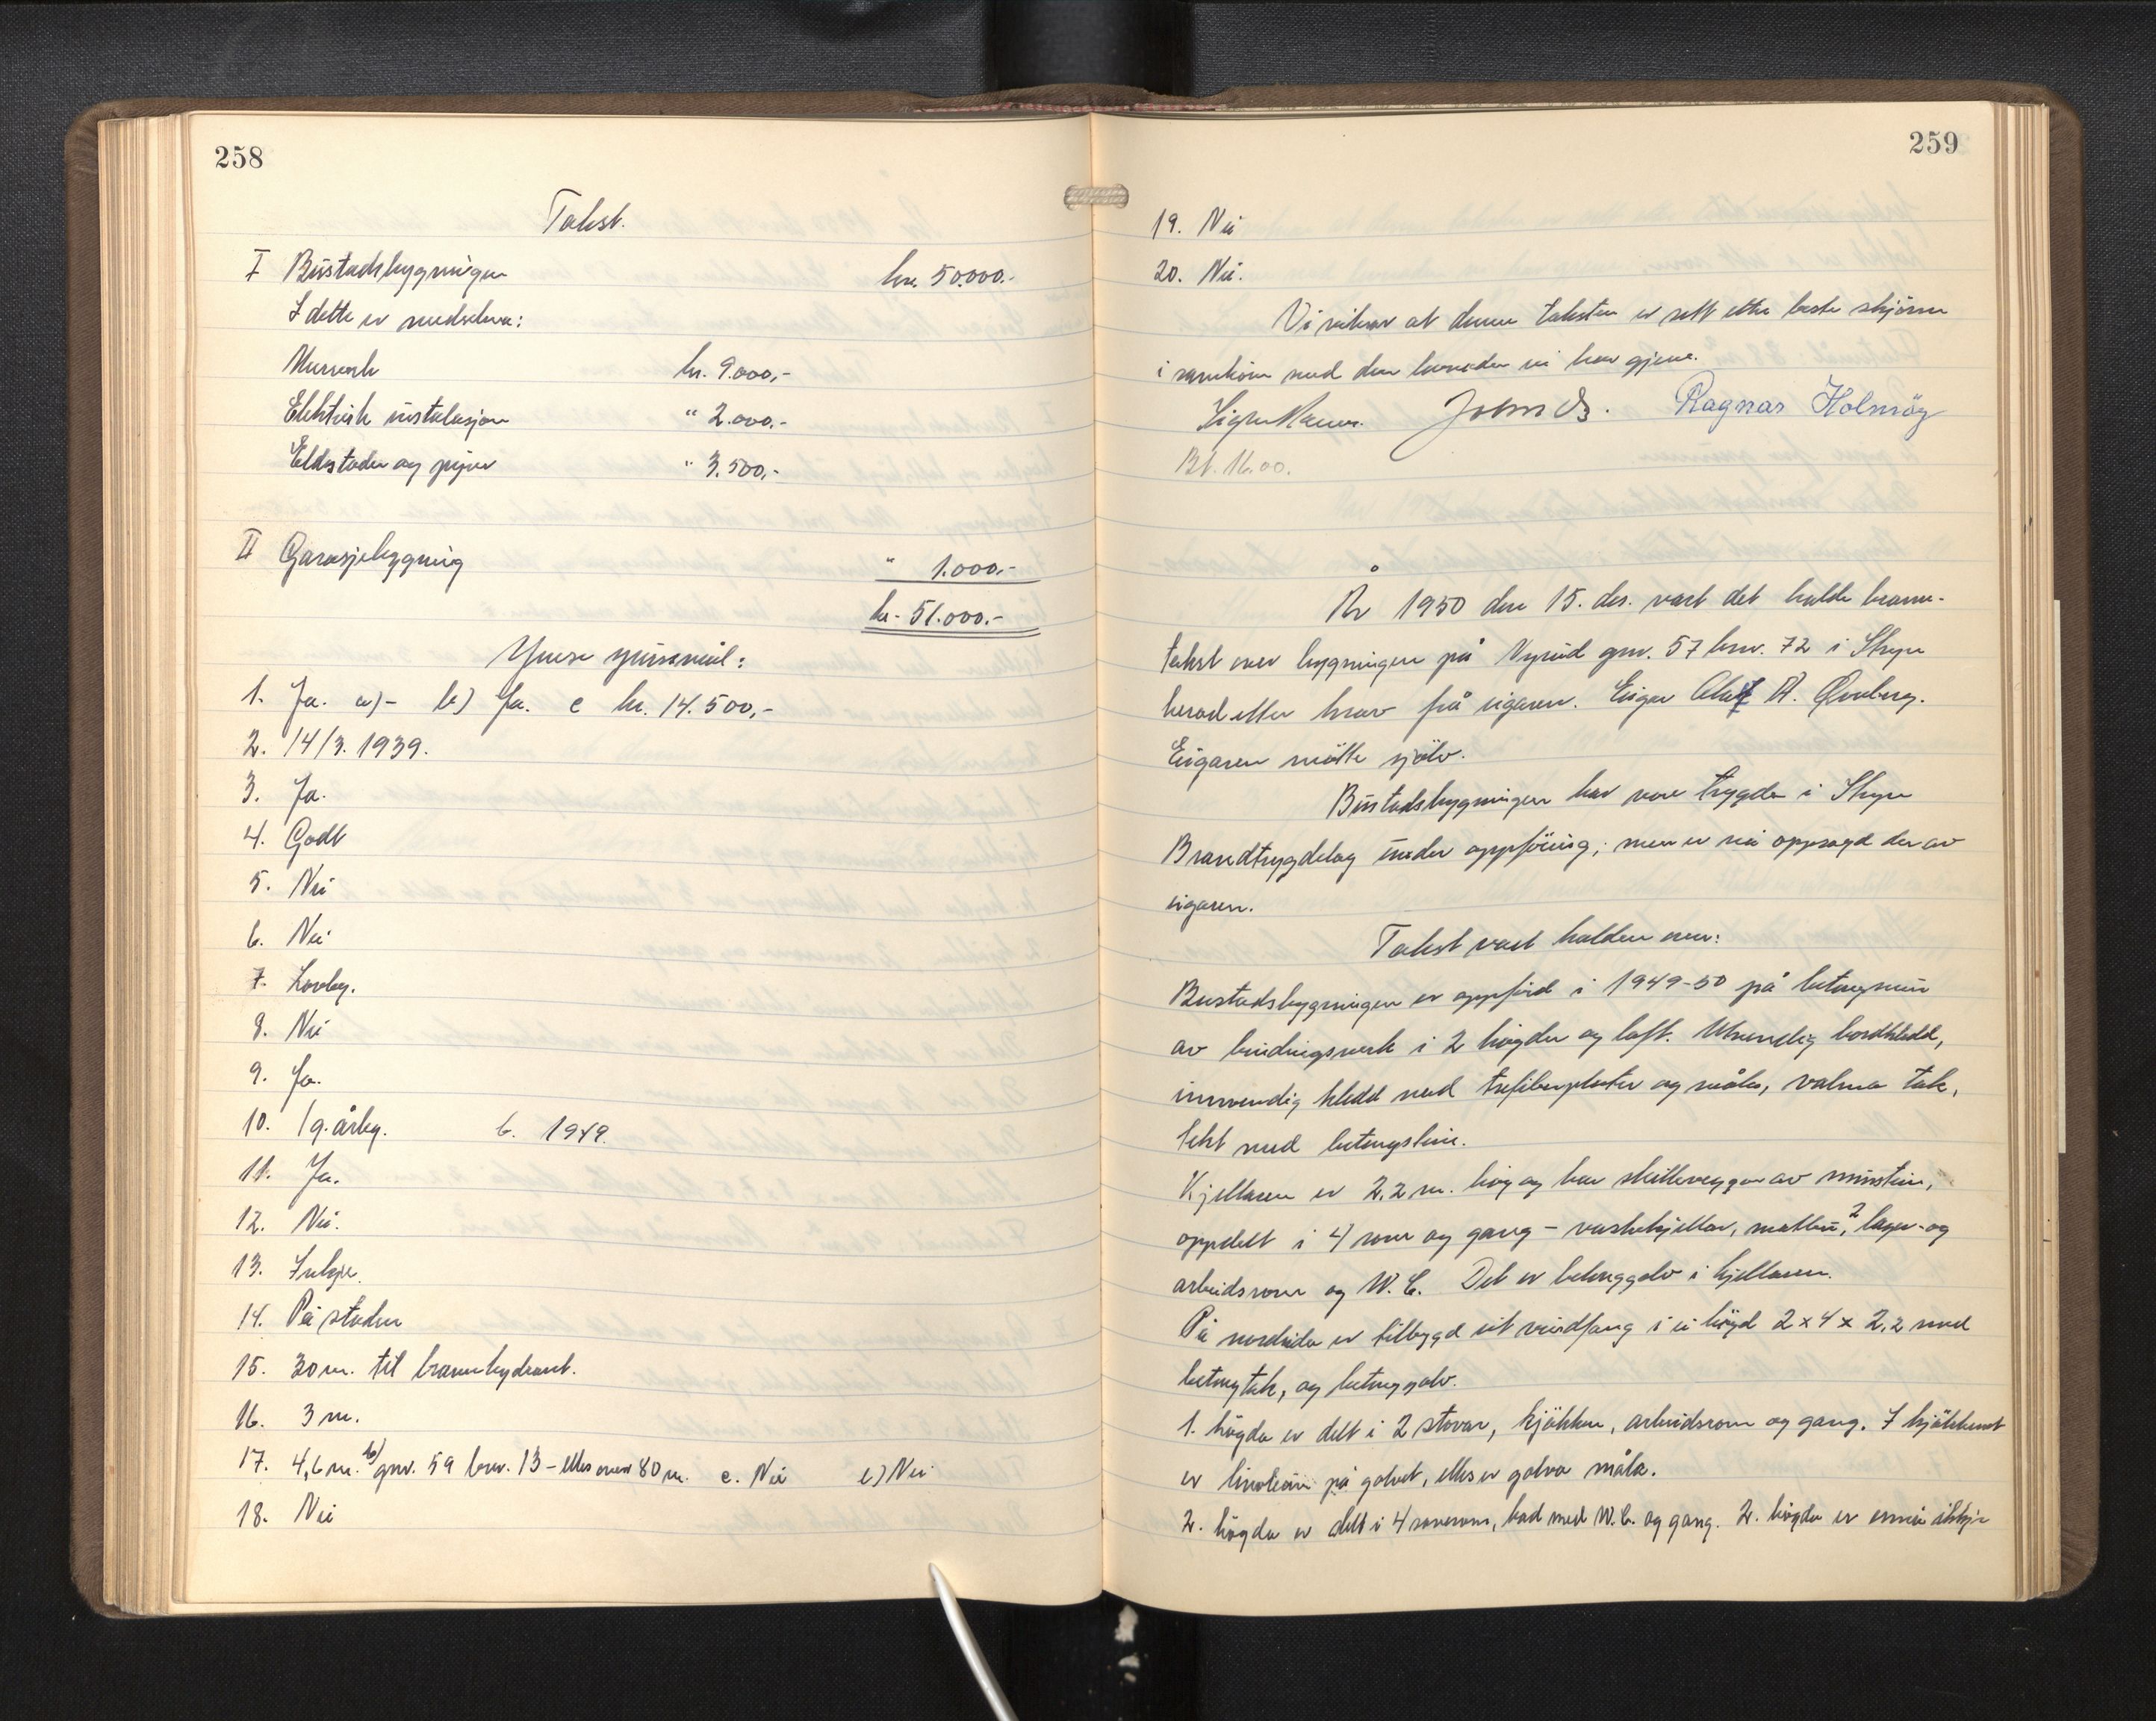 258
Takst.
I Bustadsbygningen kr. 50.000.-
I dette er medrekna:
Murverk kr. 9.000,-
Elektrisk instalasjon " 2.000,-
Eldstader og piper " 3.500,-
II Garasjebygning " 1.000.-
kr. 51.000.-
Ymse spursmål:
1. Ja. a) - b) Ja. c kr. 14.500,-
2. 14/3. 1939.
3. Ja.
4. Godt
5. Nei
6. Nei
7. Lovleg.
8. Nei
9. Ja.
10. 1 g. årleg. b. 1949.
11. Ja.
12. Nei.
13. Inkje.
14. På staden
15. 30 m. til brannhydrant.
16. 3 m.
17. 4,6 m. b) gnr. 59 bnr. 13 - elles over 80 m. c. Nei e) Nei
18. Nei
259
19. Nei
20. Nei.
Vi vitnar at denne taksten er sett etter beste skjönn
i samhöve med den kunnskap vi har gjeve.
John Ragnar Holmöy
Bt. 16.00.
År 1950 den 15. des. vart det halde brann-
takst over bygningen på Nyrud gnr. 57 bnr. 72 i Stryn
herad etter krav frå eigaren. Eigar Olaf A.
Eigaren mötte sjölv.
Bustadsbygningen har vore trygda i Stryn
Brandtrygdelag under oppföring; men er nå oppsagd der av
eigaren.
Takst vart halden over:
Bustadsbygningen er oppförd i 1949-50 på betongmur
av bindingsverk i 2 högder og loft. Utvendig bordkledd,
innvendig kledd med trefiberplater og måla, valma tak,
tekt med betongstein.
Kjellaren er 2,2 m. hög og har skilleveggar av murstein,
oppdelt i 4 rom og gang - vaskekjellar, matbu, 2 lager- og
arbeidsrom og W.C. Det er betonggolv i kjellaren.
På nordsida er tilbygd eit vindfang i ei högd 2 x 4 x 2,2 med
betongtak, og betonggolv.
1. högda er delt i 2 stover, kjökken, arbeidsrom og gang. I kjökkenet
er linoleum på golvet, elles er golva måla.
2. högda er delt i 4 soverom, bad med W.C. og gang. 2. högda er ennå ikkje